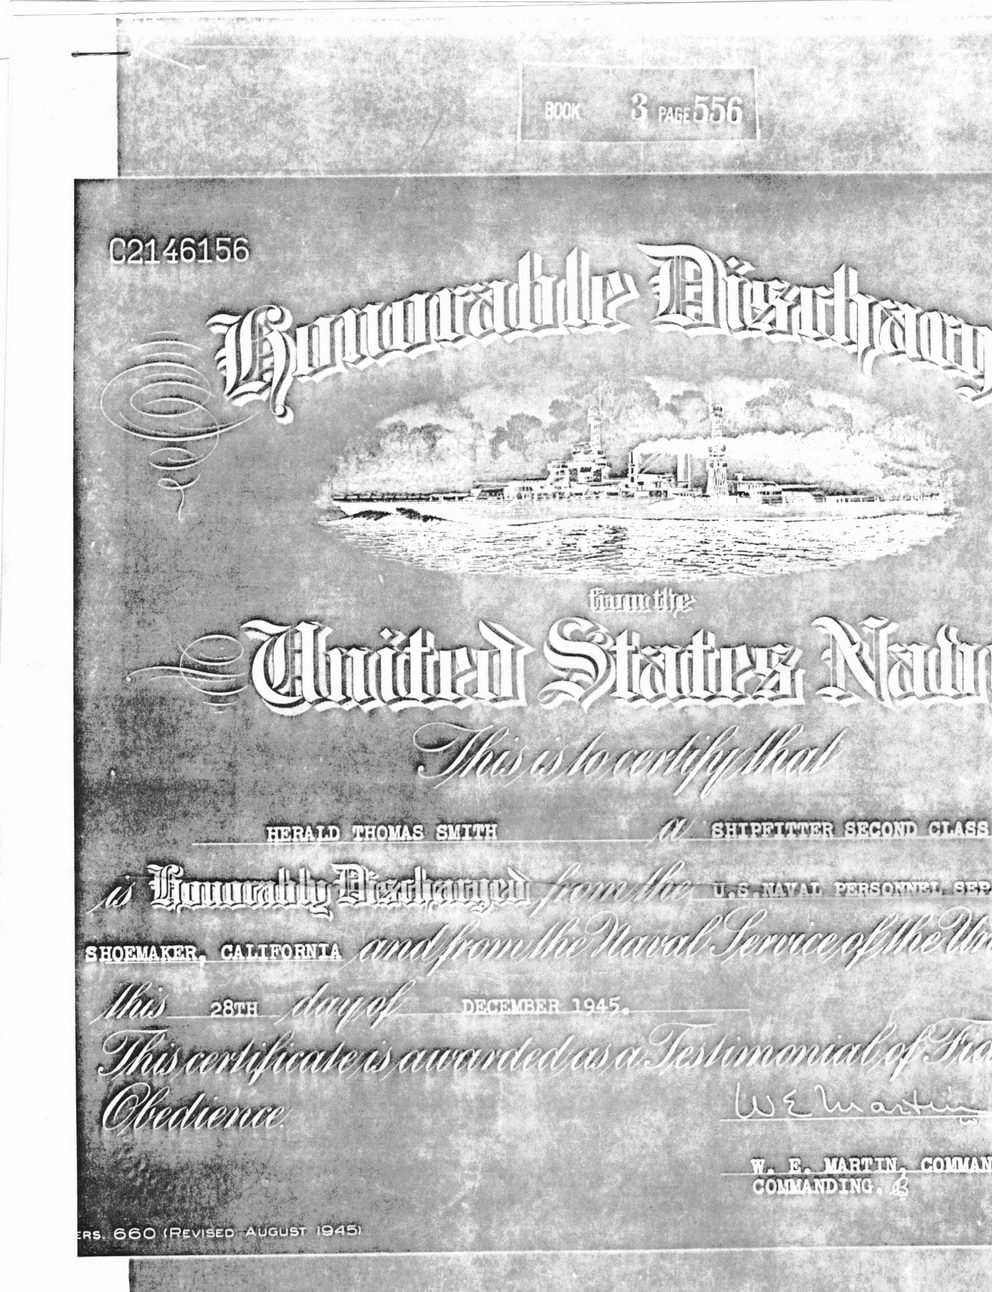 BOOK 3 PAGE 556
C2146156
Honorable Discharg
from the
United States Nav
This is to certify that
HERALD THOMAS SMITH a SHIPFITTER SECOND CLASS
is Honorably Discharged from the U.S. NAVAL PERSONNEL SEP
SHOEMAKER, CALIFORNIA and from the Naval Service of the Un
this 28TH day of DECEMBER 1945.
This certificate is awarded as a Testimonial of Fid
Obedience.
W E Martin
W. E. MARTIN, COMMAN
COMMANDING.
ERS. 660 (REVISED AUGUST 1945)